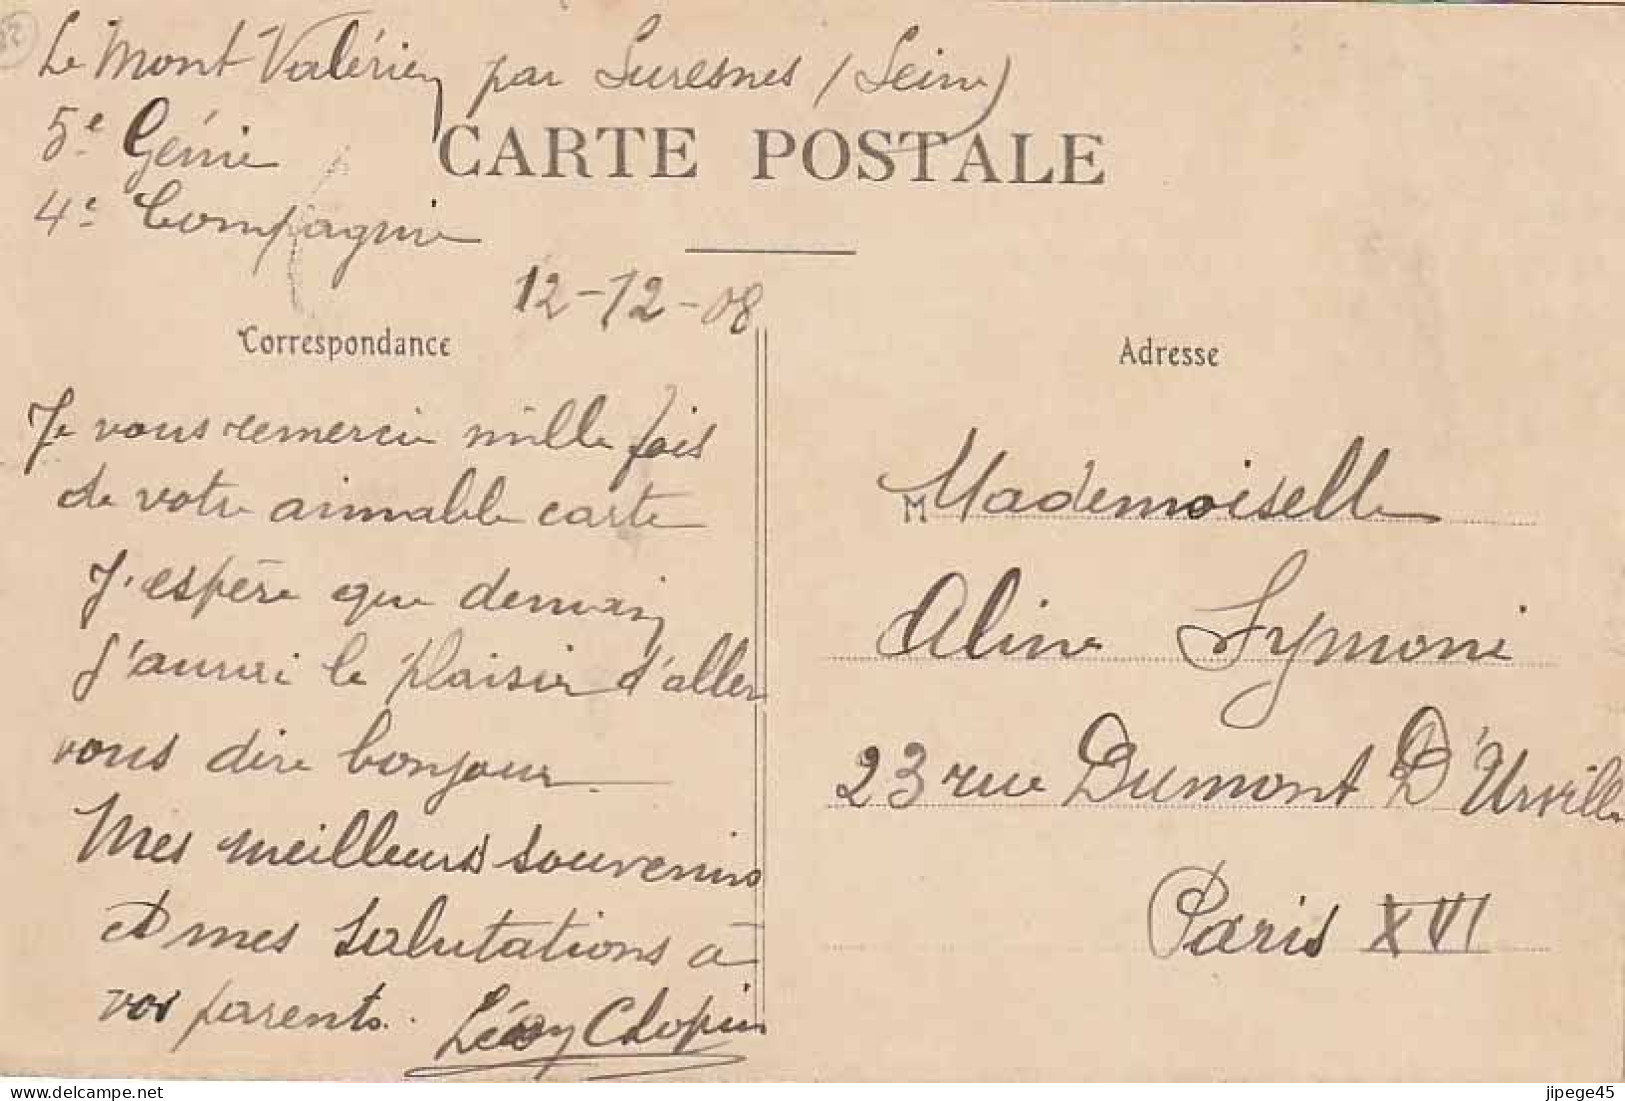 Le Mont Valérien par Suresnes (Seine)
5e Génie
4e Compagnie
CARTE POSTALE
12-12-08
Correspondance
Je vous remercie mille fois
de votre aimable carte
J'espère que demain
j'aurai le plaisir d'aller
vous dire bonjour
Mes meilleurs souvenirs
et mes salutations à
vos parents.
Chopin
Adresse
M Mademoiselle
Aline Symoni
23 rue Dumont D'Urville
Paris XVI
delcampe.net
jipege45